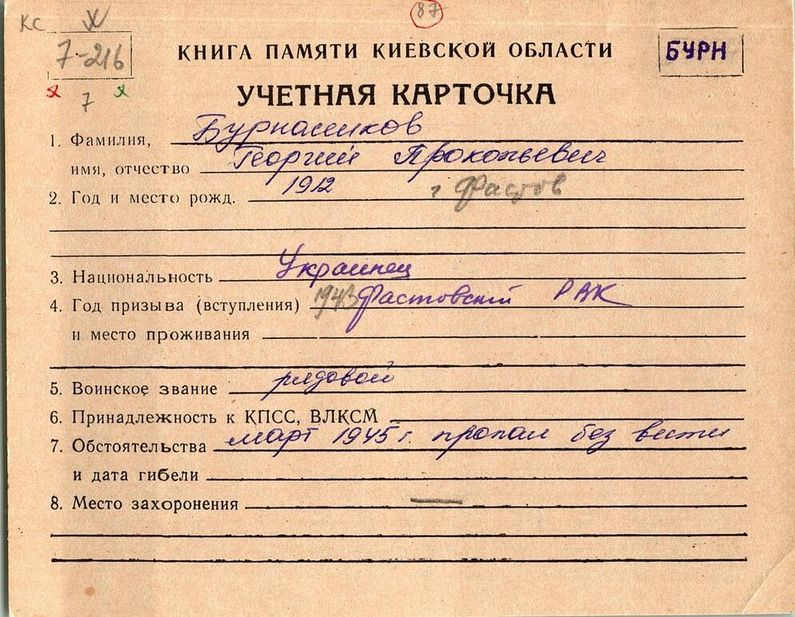 КС
87
7-216
КНИГА ПАМЯТИ КИЕВСКОЙ ОБЛАСТИ
БУРН
7
УЧЕТНАЯ КАРТОЧКА
1. Фамилия, Бурнасиков
имя, отчество Георгий Прокопьевич
2. Год и место рожд. 1912 г Фастов
3. Национальность Украинец
4. Год призыва (вступления) 1943 Фастовский РВК
и место проживания
5. Воинское звание рядовой
6. Принадлежность к КПСС, ВЛКСМ
7. Обстоятельства март 1945 г. пропал без вести
и дата гибели
8. Место захоронения —